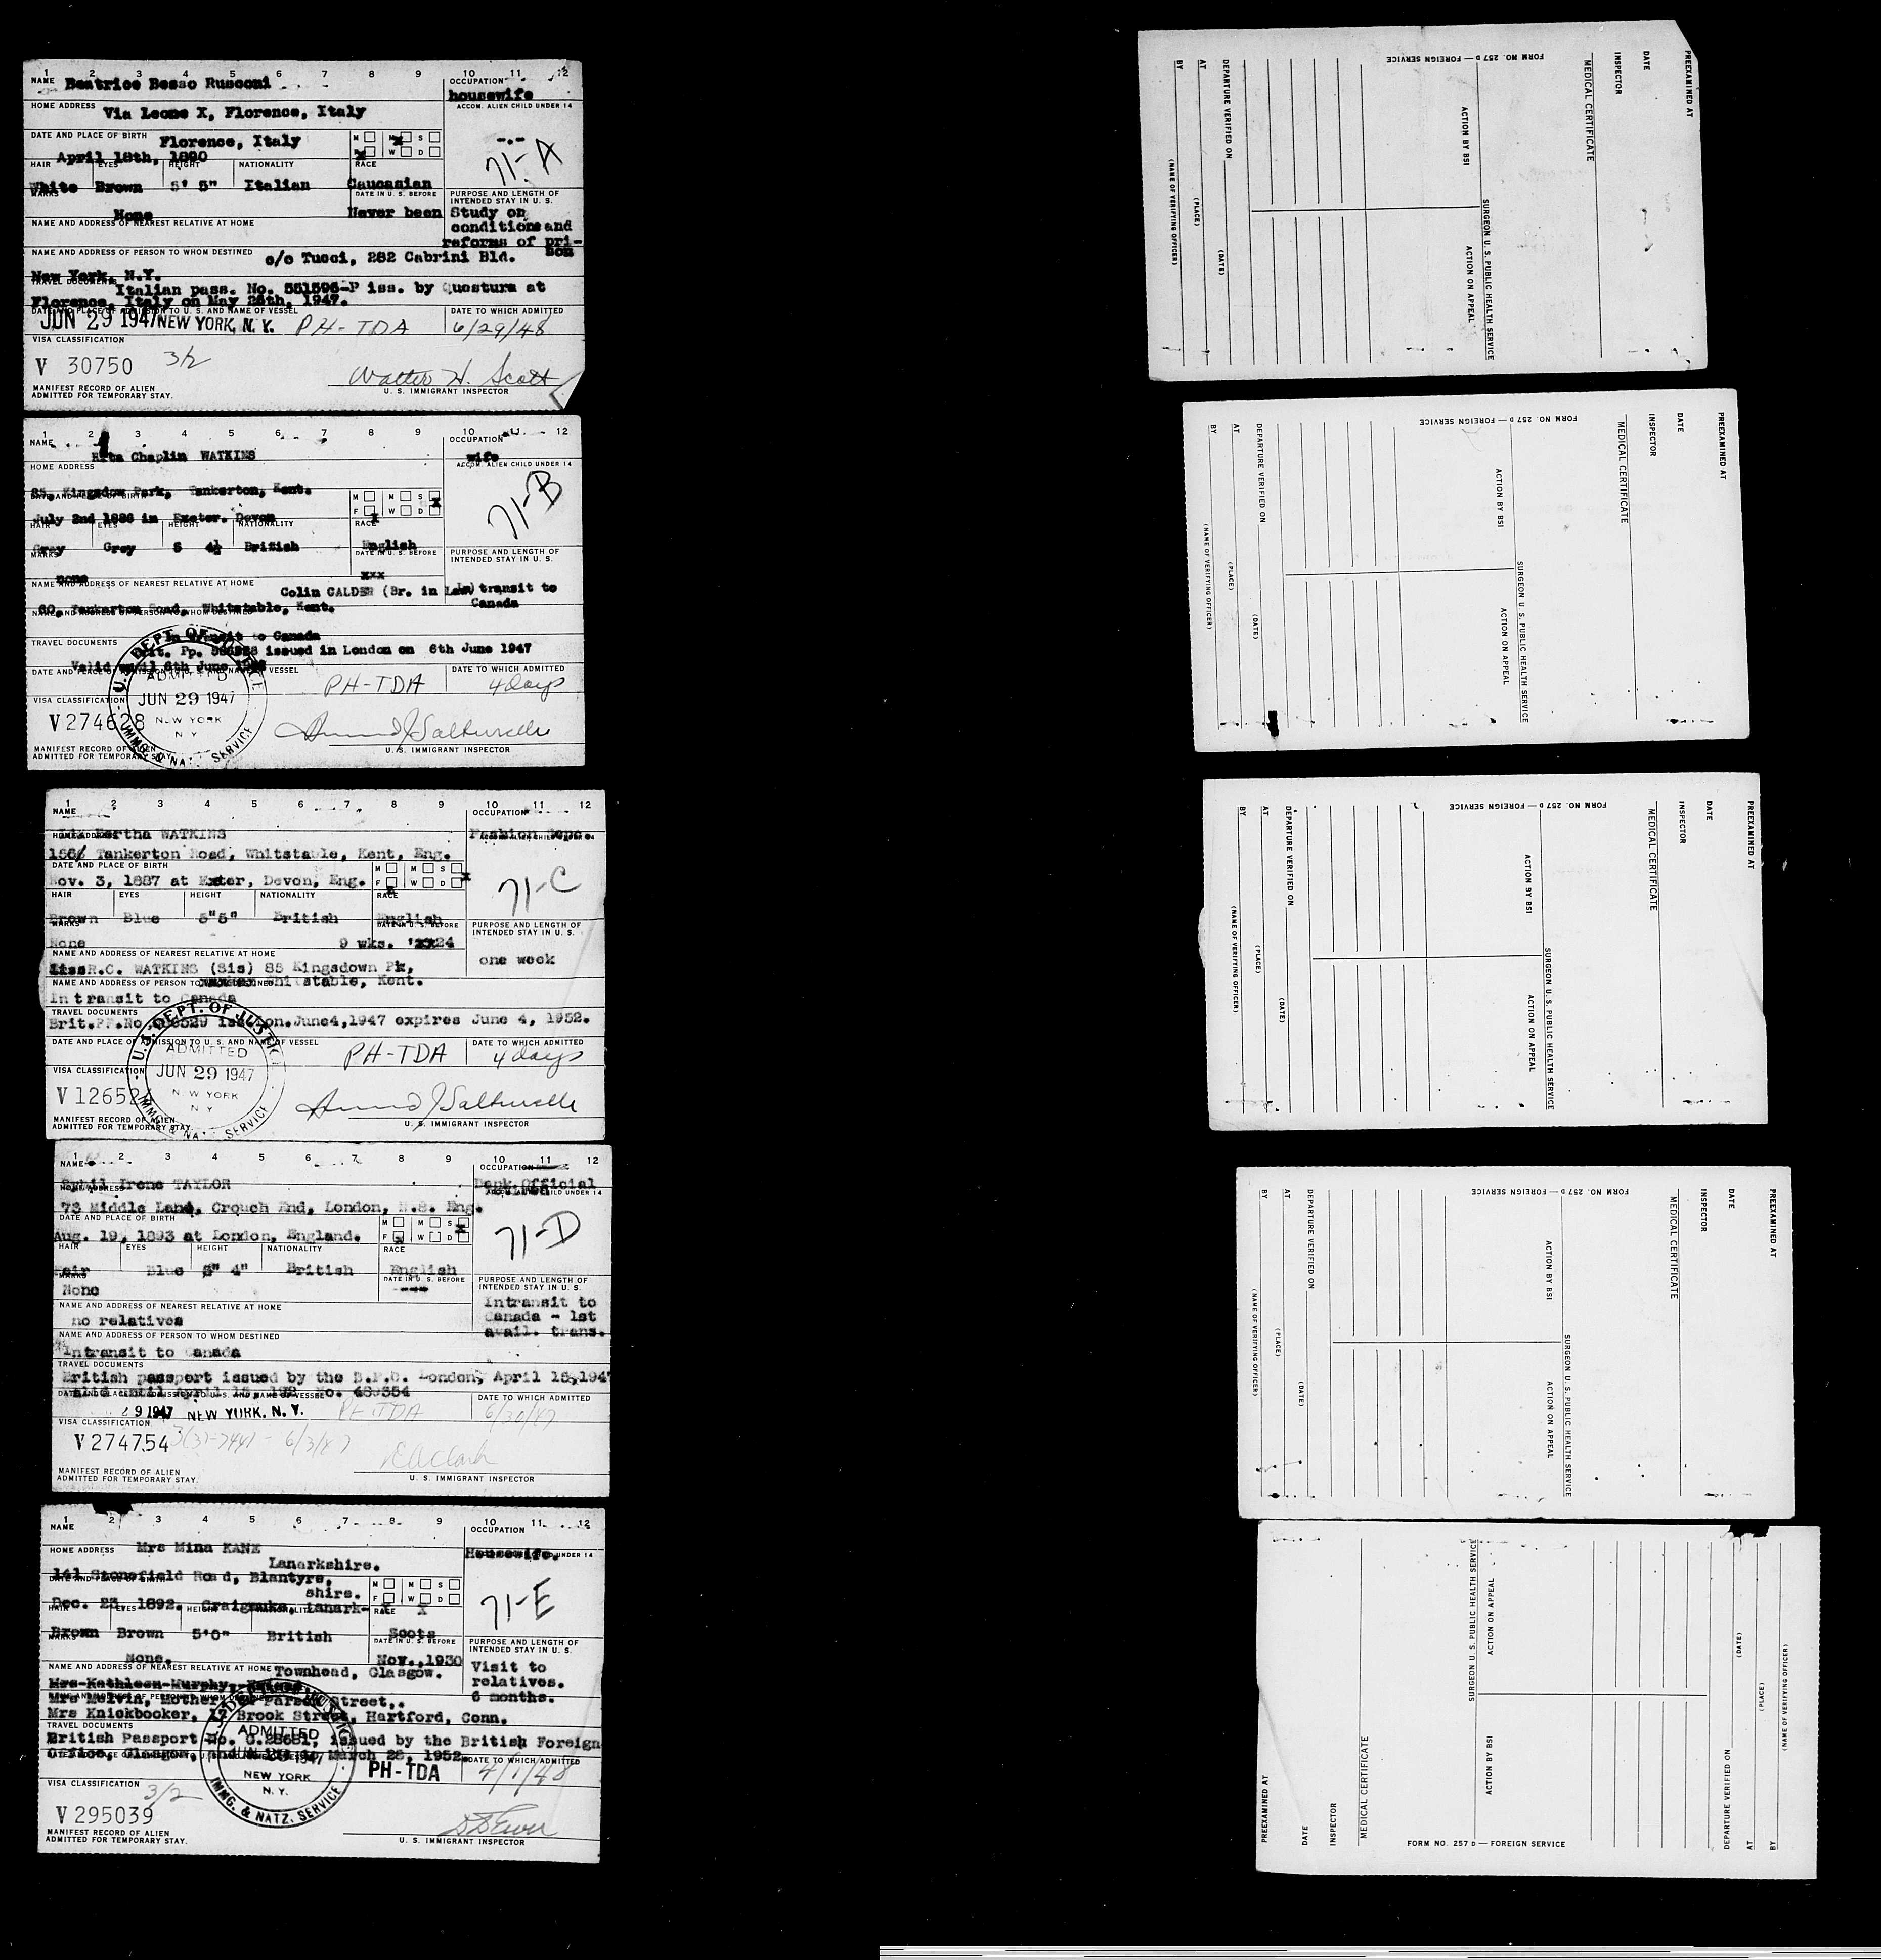 1 2 3 4 5 6 7 8 9 10 11 12
NAME Beatrice Besso Rusconi
OCCUPATION
housewife
HOME ADDRESS
ACCOM. ALIEN CHILD UNDER 14
Via Leone X, Florence, Italy
DATE AND PLACE OF BIRTH Florence, Italy
M M S
F W D
April 18th, 1890
-.-
71-A
HAIR EYES HEIGHT NATIONALITY RACE
White Brown 5' 5" Italian Caucasian
MARKS
DATE IN U. S. BEFORE
PURPOSE AND LENGTH OF
INTENDED STAY IN U. S.
None
Never been
Study on
conditions and
reforms of pri-
son
NAME AND ADDRESS OF NEAREST RELATIVE AT HOME
NAME AND ADDRESS OF PERSON TO WHOM DESTINED c/o Tucci, 282 Cabrini Bld.
New York, N.Y.
TRAVEL DOCUMENTS Italian pass. No. 551596-P iss. by Questura at
Florence, Italy on May 26th, 1947.
DATE AND PLACE OF ADMISSION TO U. S. AND NAME OF VESSEL
DATE TO WHICH ADMITTED
JUN 29 1947 NEW YORK, N. Y. PH-TDA 6/29/48
VISA CLASSIFICATION
V 30750 3/2
Walter H. Scott
MANIFEST RECORD OF ALIEN
ADMITTED FOR TEMPORARY STAY.
U. S. IMMIGRANT INSPECTOR
1 2 3 4 5 6 7 8 9 10 12
NAME
OCCUPATION
Rita Chaplin WATKINS
wife
HOME ADDRESS
ACCOM. ALIEN CHILD UNDER 14
85, Kingsdown Park, Tankerton, Kent.
DATE AND PLACE OF BIRTH
M M S
F W D
July 2nd 1886 in Exeter. Devon
71-B
HAIR EYES HEIGHT NATIONALITY RACE
Grey Grey 5 4½ British English
MARKS
DATE IN U. S. BEFORE
PURPOSE AND LENGTH OF
INTENDED STAY IN U. S.
none
xxx
NAME AND ADDRESS OF NEAREST RELATIVE AT HOME
Colin CALDER (Br. in Law) transit to
Canada
60, Tankerton Road, Whitstable, Kent.
NAME AND ADDRESS OF PERSON TO WHOM DESTINED
In transit to Canada
TRAVEL DOCUMENTS
Brit. Pp. issued in London on 6th June 1947
Valid until 6th June
DATE AND PLACE OF ADMISSION TO U. S. AND NAME OF VESSEL
DATE TO WHICH ADMITTED
U. S. DEPT. OF JUSTICE
ADMITTED
JUN 29 1947
NEW YORK
N Y
IMMG. & NATZ. SERVICE
PH-TDA 4 days
VISA CLASSIFICATION
V 274628
MANIFEST RECORD OF ALIEN
ADMITTED FOR TEMPORARY STAY.
U. S. IMMIGRANT INSPECTOR
1 2 3 4 5 6 7 8 9 10 11 12
NAME
OCCUPATION
Bertha WATKINS
Fashion
HOME ADDRESS
Tankerton Road, Whitstable, Kent, Eng.
DATE AND PLACE OF BIRTH
M M S
F W D
Nov. 3, 1887 at Exeter, Devon, Eng.
71-C
HAIR EYES HEIGHT NATIONALITY RACE
Brown Blue 5"5" British English
MARKS
DATE IN U. S. BEFORE
PURPOSE AND LENGTH OF
INTENDED STAY IN U. S.
None
9 wks. '24
NAME AND ADDRESS OF NEAREST RELATIVE AT HOME
one week
Miss R.C. WATKINS (Sis) 85 Kingsdown Pk,
NAME AND ADDRESS OF PERSON TO WHOM DESTINED
Whitstable, Kent.
In transit to Canada
TRAVEL DOCUMENTS
Brit.PP.No. June4,1947 expires June 4, 1952.
DATE AND PLACE OF ADMISSION TO U. S. AND NAME OF VESSEL
DATE TO WHICH ADMITTED
U. S. DEPT. OF JUSTICE
ADMITTED
JUN 29 1947
NEW YORK
N Y
IMMG. & NATZ. SERVICE
PH-TDA 4 days
VISA CLASSIFICATION
V 12652
MANIFEST RECORD OF ALIEN
ADMITTED FOR TEMPORARY STAY.
U. S. IMMIGRANT INSPECTOR
1 2 3 4 5 6 7 8 9 10 11 12
NAME
OCCUPATION
Sybil Irene TAYLOR
Bank Official
HOME ADDRESS
73 Middle Lane, Crouch End, London, N.8. Eng.
DATE AND PLACE OF BIRTH
M M S
F W D
Aug. 19, 1893 at London, England.
71-D
HAIR EYES HEIGHT NATIONALITY RACE
Fair Blue 5" 4" British English
MARKS
DATE IN U. S. BEFORE
PURPOSE AND LENGTH OF
INTENDED STAY IN U. S.
None
----
Intransit to
Canada - 1st
avail. trans.
NAME AND ADDRESS OF NEAREST RELATIVE AT HOME
no relatives
NAME AND ADDRESS OF PERSON TO WHOM DESTINED
Intransit to Canada
TRAVEL DOCUMENTS
British passport issued by the London, April 15,1947
valid until April 15, No. 489354
DATE TO WHICH ADMITTED
29 1947 NEW YORK, N. Y. PH-TDA 6/30/47
VISA CLASSIFICATION
V 274754
MANIFEST RECORD OF ALIEN
ADMITTED FOR TEMPORARY STAY.
U. S. IMMIGRANT INSPECTOR
1 2 3 4 5 6 7 8 9 10 11 12
NAME
OCCUPATION
HOME ADDRESS Mrs Mina KANE
Housewife.
Lanarkshire.
141 Stonefield Road, Blantyre,
M M S
F W D
shire.
Dec. 23, 1892. Craigneuk, Lanark-
RACE
71-E
Brown Brown 5'0" British Scots
DATE IN U. S. BEFORE
PURPOSE AND LENGTH OF
INTENDED STAY IN U. S.
None.
Nov.,1930
Visit to
relatives.
6 months.
NAME AND ADDRESS OF NEAREST RELATIVE AT HOME Townhead, Glasgow.
Mrs Kathleen Murphy,
Mrs Melvin, Mother, Parson Street,.
Mrs Knickbocker, 17 Brook Street, Hartford, Conn.
TRAVEL DOCUMENTS
British Passport No. C.28681, issued by the British Foreign
Office, Glasgow, March 28, 1952.
DATE TO WHICH ADMITTED
ADMITTED
1947
NEW YORK
N. Y.
IMMG. & NATZ. SERVICE
PH-TDA 4/1/48
VISA CLASSIFICATION 3/2
V 295039
MANIFEST RECORD OF ALIEN
ADMITTED FOR TEMPORARY STAY.
U. S. IMMIGRANT INSPECTOR
PREEXAMINED AT
DATE
INSPECTOR
MEDICAL CERTIFICATE
SURGEON U. S. PUBLIC HEALTH SERVICE
ACTION BY BSI
ACTION ON APPEAL
DEPARTURE VERIFIED ON
(DATE)
AT
(PLACE)
BY
(NAME OF VERIFYING OFFICER)
FORM NO. 257 D — FOREIGN SERVICE
PREEXAMINED AT
DATE
INSPECTOR
MEDICAL CERTIFICATE
SURGEON U. S. PUBLIC HEALTH SERVICE
ACTION BY BSI
ACTION ON APPEAL
DEPARTURE VERIFIED ON
(DATE)
AT
(PLACE)
BY
(NAME OF VERIFYING OFFICER)
FORM NO. 257 D — FOREIGN SERVICE
PREEXAMINED AT
DATE
INSPECTOR
MEDICAL CERTIFICATE
SURGEON U. S. PUBLIC HEALTH SERVICE
ACTION BY BSI
ACTION ON APPEAL
DEPARTURE VERIFIED ON
(DATE)
AT
(PLACE)
BY
(NAME OF VERIFYING OFFICER)
FORM NO. 257 D — FOREIGN SERVICE
PREEXAMINED AT
DATE
INSPECTOR
MEDICAL CERTIFICATE
SURGEON U. S. PUBLIC HEALTH SERVICE
ACTION BY BSI
ACTION ON APPEAL
DEPARTURE VERIFIED ON
(DATE)
AT
(PLACE)
BY
(NAME OF VERIFYING OFFICER)
FORM NO. 257 D — FOREIGN SERVICE
PREEXAMINED AT
DATE
INSPECTOR
MEDICAL CERTIFICATE
SURGEON U. S. PUBLIC HEALTH SERVICE
ACTION BY BSI
ACTION ON APPEAL
DEPARTURE VERIFIED ON
(DATE)
AT
(PLACE)
BY
(NAME OF VERIFYING OFFICER)
FORM NO. 257 D — FOREIGN SERVICE